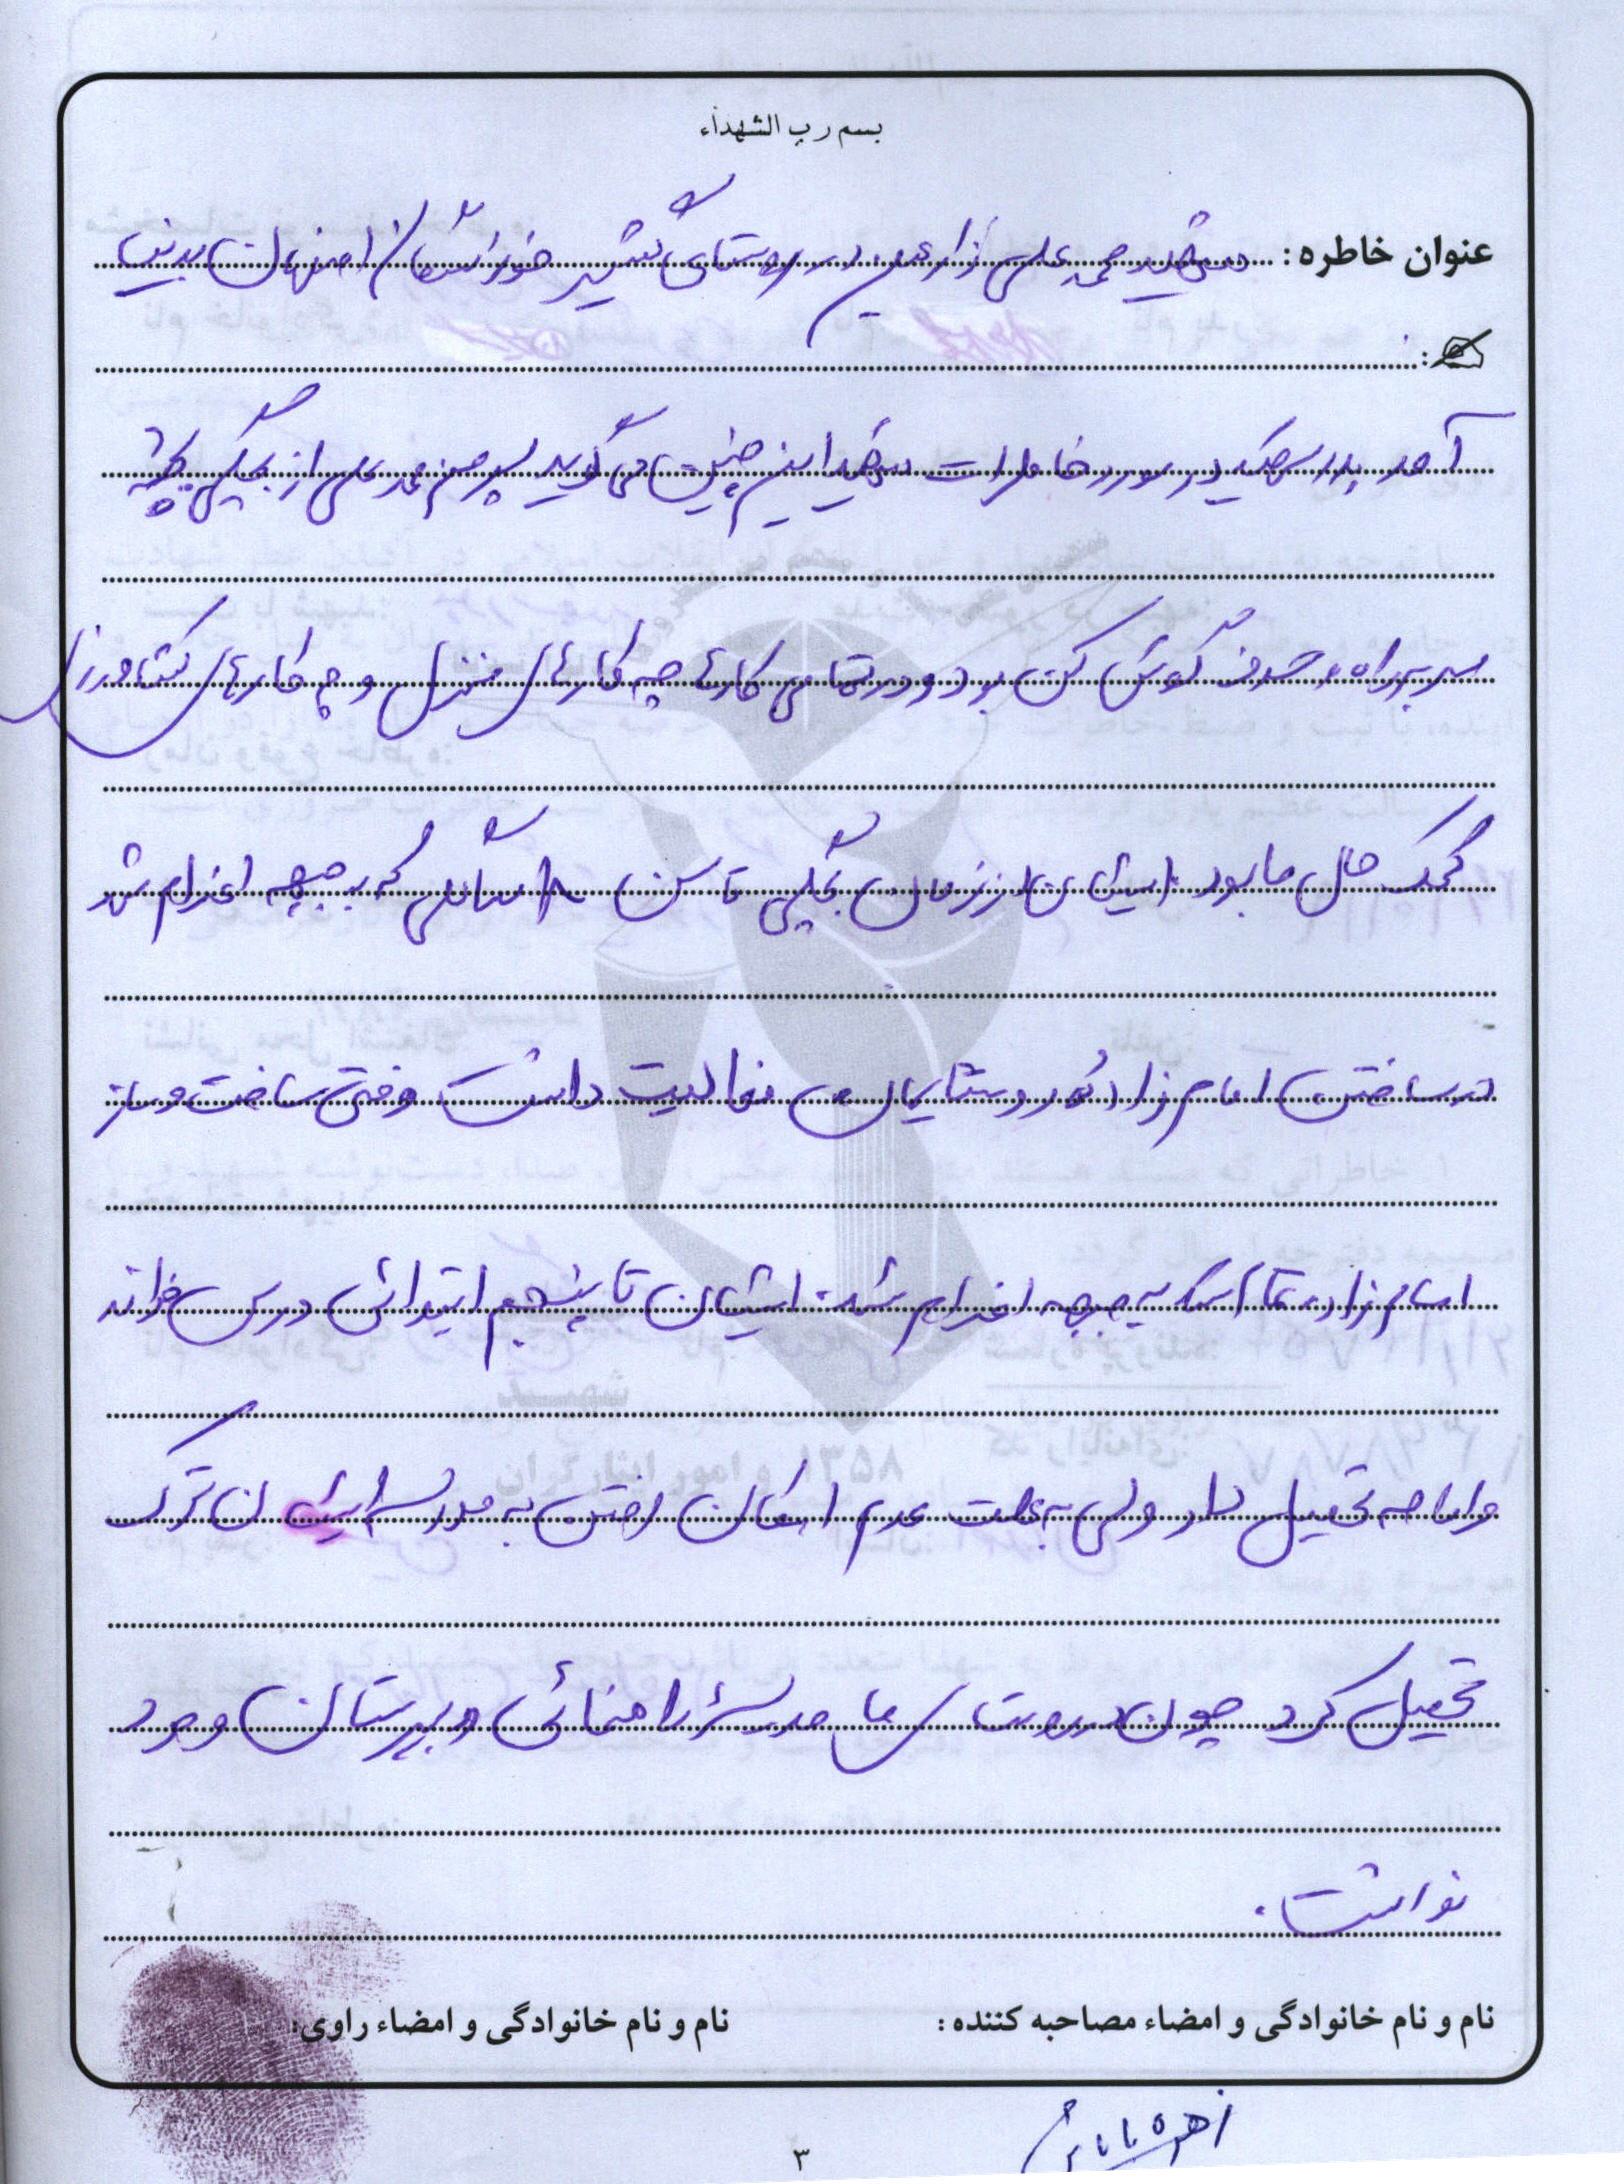 بسم رب الشهداء
عنوان خاطره: شهید محمد علی زارعین در روستای شیر خوراسگان اصفهان بدنیا
آمد پدر شهید در مورد خاطرات شهید این چنین می گوید پسر من محمد علی از بچگی بچه
سر به راه و حرف گوش کن بود و در تمامی کارها چه کارهای منزل و چه کارهای کشاورزی
کمک حال ما بود ایشان از زمان بچگی تا سن ۱۸ سالگی که به جبهه اعزام شد
در ساختن امام زاده روستایمان فعالیت داشت وقتی ساخت و ساز
امام زاده تمام به جبهه اعزام شد. ایشان تا پنجم ابتدائی درس خواند
و ادامه تحصیل داد ولی به علت عدم امکان رفتن به مدرسه ایشان ترک
تحصیل کرد چون در روستای ما مدرسه راهنمائی و دبیرستان وجود
نداشت.
نام و نام خانوادگی و امضاء مصاحبه کننده: نام و نام خانوادگی و امضاء راوی:
زهره
۳